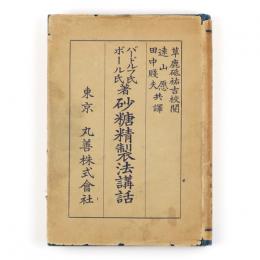 草鹿砥祐吉校閲
遠山愿共譯
田中賤夫
バードルフ氏
ボール氏著
砂糖精製法講話
東京 丸善株式會社